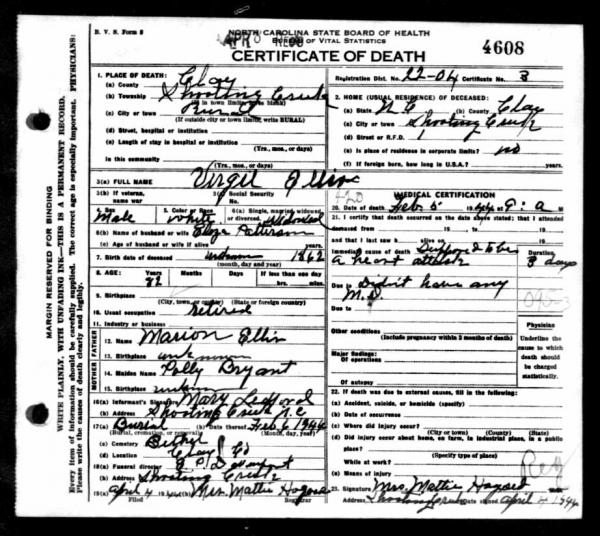 N. C. V. S. Form 8
NORTH CAROLINA STATE BOARD OF HEALTH
BUREAU OF VITAL STATISTICS
APR 8
CERTIFICATE OF DEATH
4608
Registration Dist. No. 22-04 Certificate No. 3
1. PLACE OF DEATH:
(a) County Clay
(b) Township Shooting Creek
(If in town limits, leave blank)
(c) City or town Rural
(If outside city or town limits, write RURAL)
(d) Street, hospital or institution
(e) Length of stay in hospital or institution
(Yrs., mos., or days)
In this community
(Yrs., mos., or days)
2. HOME (USUAL RESIDENCE) OF DECEASED:
(a) State N. C. (b) County Clay
(c) City or town Shooting Creek
(d) Street or R.F.D. 1
(e) Is place of residence in corporate limits? no
(f) If foreign born, how long in U.S.A.?
3(a) FULL NAME Virgil Ellis
3(b) If veteran, name war
3(c) Social Security No.
4. Sex Male
5. Color or Race White
6(a) Single, married, widowed or divorced. Widowed
6(b) Name of husband or wife Patterson
6(c) Age of husband or wife if alive
7. Birth date of deceased unknown 1862
(month, day and year)
8. AGE: Years 82 Months Days If less than one day
hrs. min.
9. Birthplace
(City, town, or county) (State or foreign country)
10. Usual occupation retired
11. Industry or business
FATHER
12. Name Marion Ellis
13. Birthplace unknown
MOTHER
14. Maiden Name Polly Bryant
15. Birthplace unknown
16(a) Informant's Signature Mary Ledford
(b) Address Shooting Creek N.C.
17(a) Burial (b) Date thereof Feb 6 1944
(Burial, cremation, or removal) (Month, day, year)
(c) Cemetery Bethel
(d) Location Clay Co
18(a) Funeral director
(b) Address Shooting Creek
19(a) April 4 1944 (b) Mrs. Mattie Hogsed
Filed Registrar
MEDICAL CERTIFICATION
20. Date of death Feb. 5 1944 9: a M
21. I certify that death occurred on the date above stated; that I attended
deceased from 19 to 19
and that I last saw h alive on 19
Immediate cause of death Supposed to be Duration
a heart attack 3 days
Due to Didn't have any
M.D.
Due to
Other conditions
(Include pregnancy within 3 months of death)
Major findings:
Of operations
Of autopsy
Physician
Underline the cause to which death should be charged statistically.
22. If death was due to external causes, fill in the following:
(a) Accident, suicide, or homicide (specify)
(b) Date of occurrence
(c) Where did injury occur?
(City or town) (County) (State)
(d) Did injury occur about home, on farm, in industrial place, in a public
place?
(Specify type of place)
While at work?
(e) Means of injury
Reg
23. Signature Mrs. Mattie Hogsed
Address Shooting Creek Date signed April 4 1944
MARGIN RESERVED FOR BINDING
WRITE PLAINLY, WITH UNFADING INK—THIS IS A PERMANENT RECORD.
Every item of information should be carefully supplied. The correct age is especially important. PHYSICIANS:
Please write the causes of death clearly and legibly.